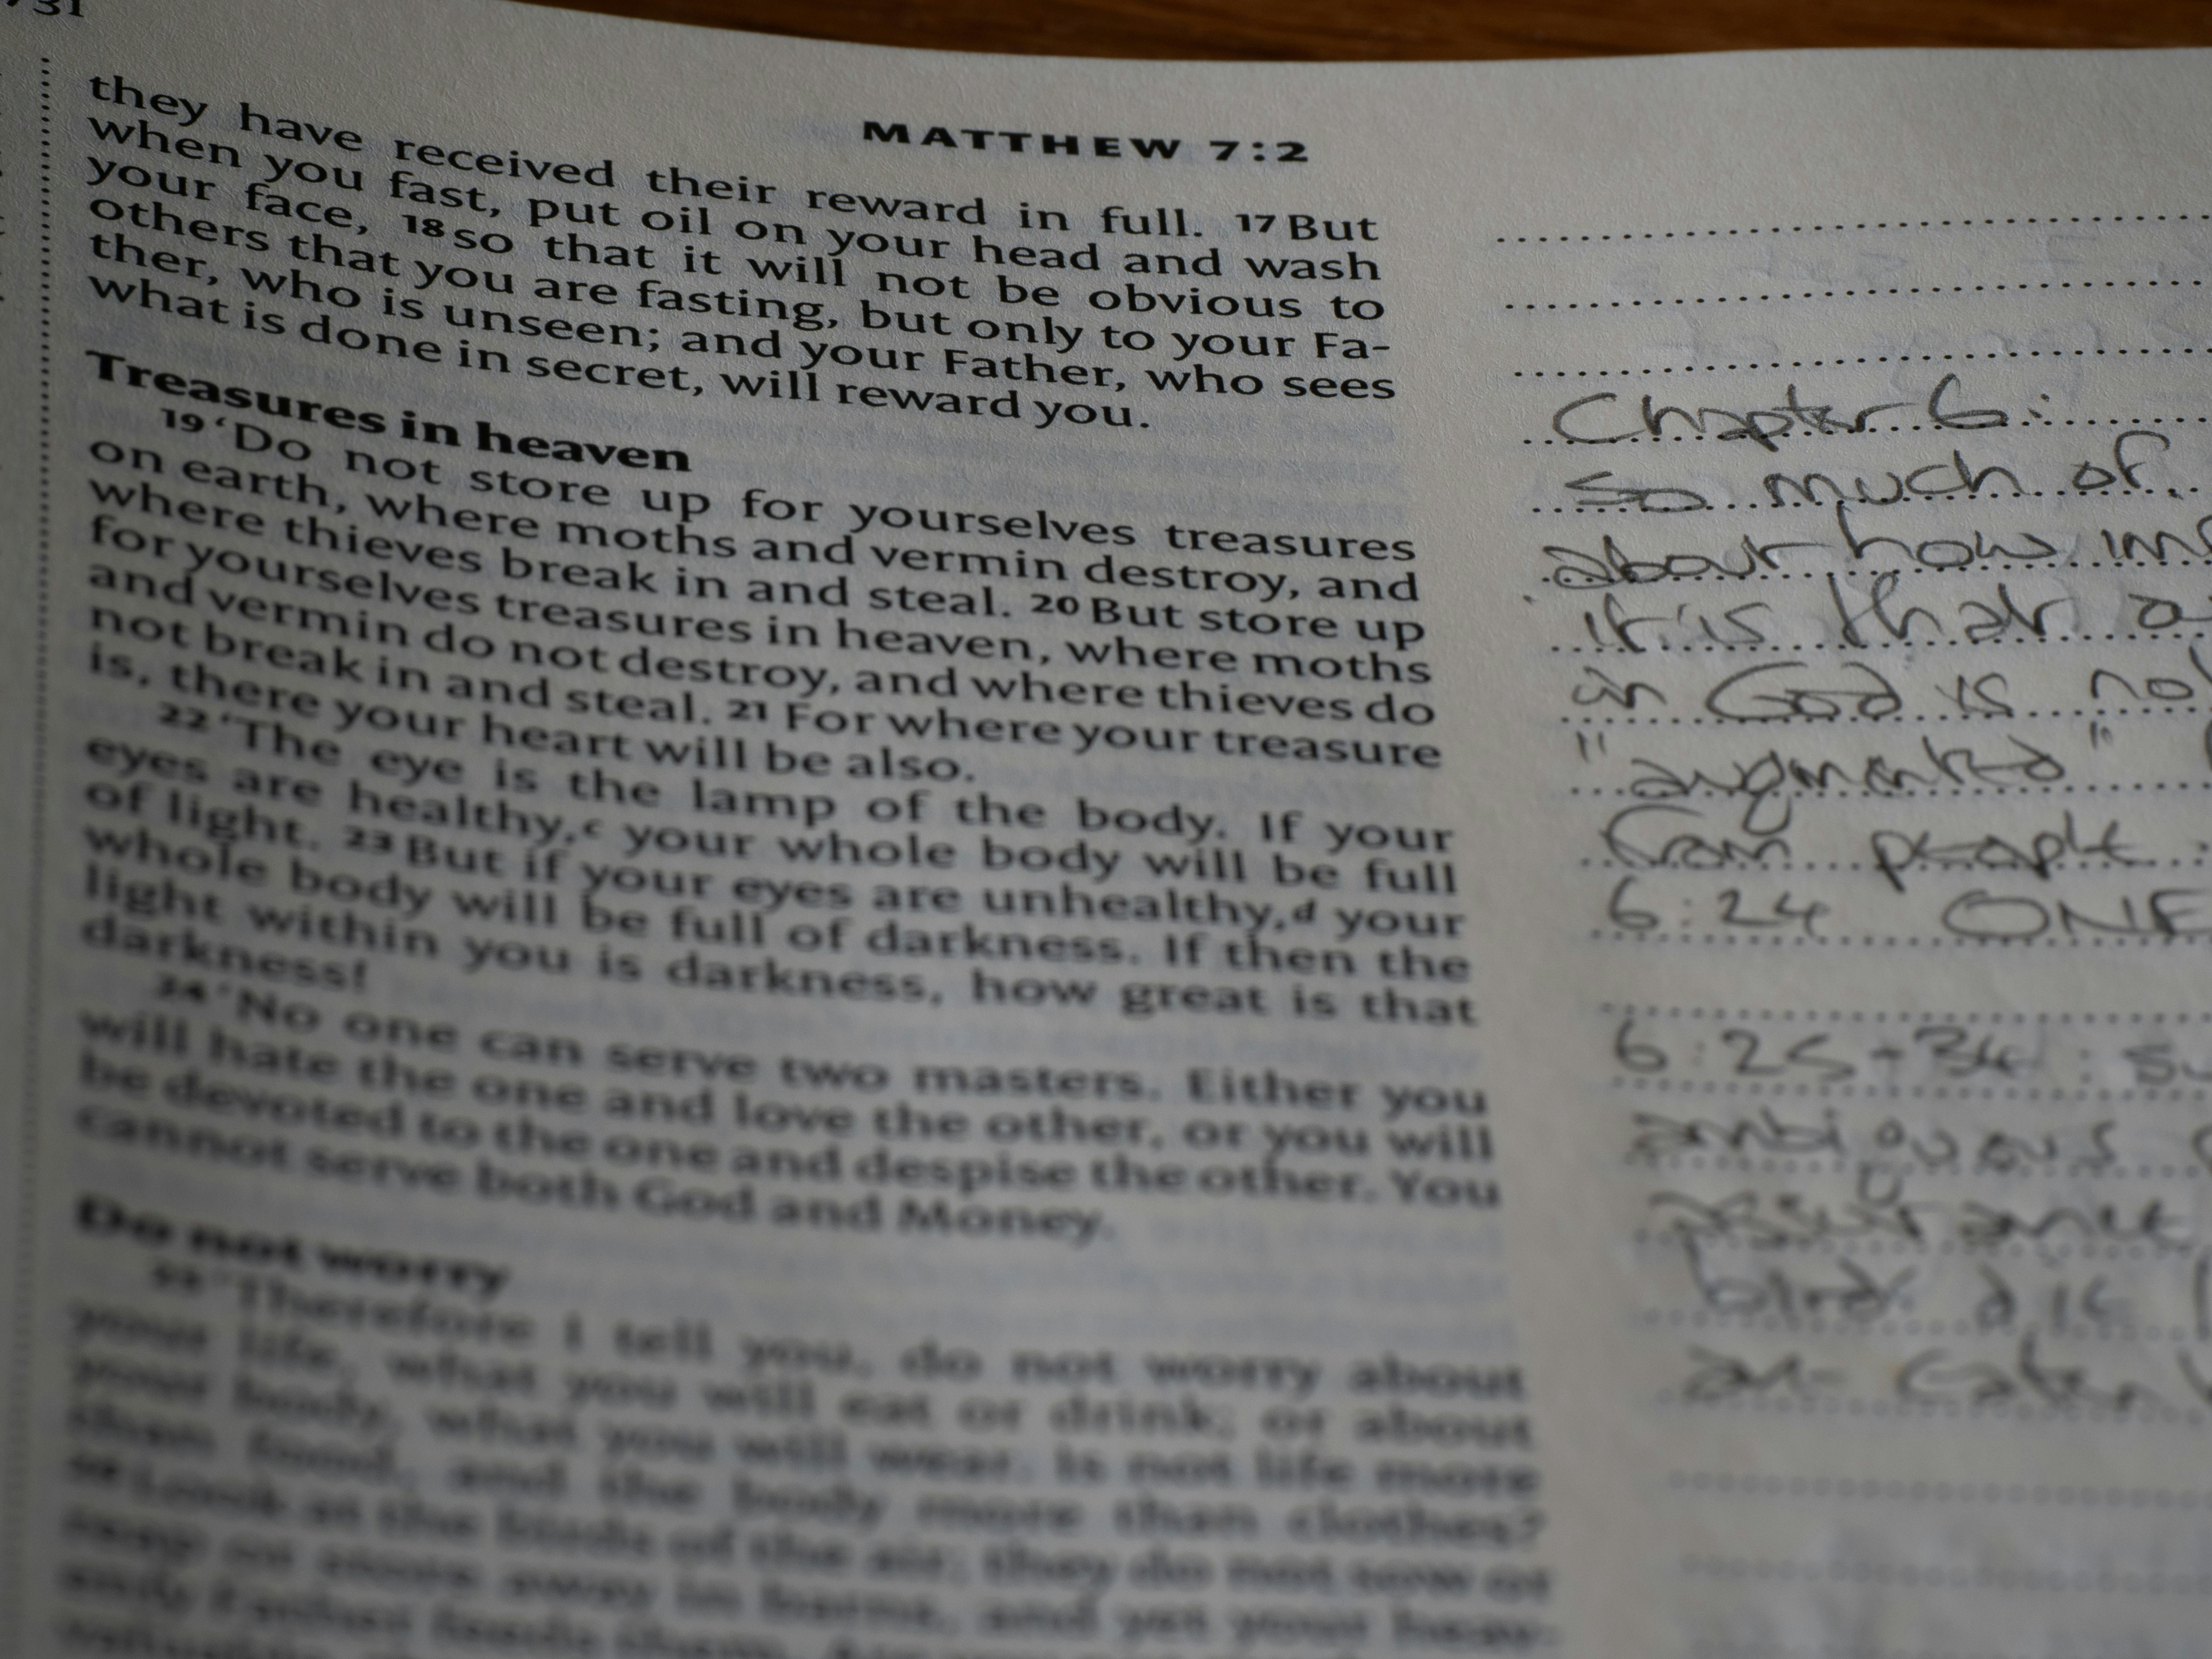 731
MATTHEW 7:2
they have received their reward in full. 17 But
when you fast, put oil on your head and wash
your face, 18 so that it will not be obvious to
others that you are fasting, but only to your Fa-
ther, who is unseen; and your Father, who sees
what is done in secret, will reward you.
Treasures in heaven
19 ‘Do not store up for yourselves treasures
on earth, where moths and vermin destroy, and
where thieves break in and steal. 20 But store up
for yourselves treasures in heaven, where moths
and vermin do not destroy, and where thieves do
not break in and steal. 21 For where your treasure
is, there your heart will be also.
22 ‘The eye is the lamp of the body. If your
eyes are healthy,c your whole body will be full
of light. 23 But if your eyes are unhealthy,d your
whole body will be full of darkness. If then the
light within you is darkness, how great is that
darkness!
24 ‘No one can serve two masters. Either you
will hate the one and love the other, or you will
be devoted to the one and despise the other. You
cannot serve both God and Money.
Do not worry
25 ‘Therefore I tell you, do not worry about
your life, what you will eat or drink; or about
your body, what you will wear. Is not life more
than food, and the body more than clothes?
26 Look at the birds of the air; they do not sow or
reap or store away in barns, and yet your heav-
enly Father feeds them.
Chapter 6:
so much of
about how
it is that
in God is
"augmented"
from people
6:24 ONE
6:25-34:
assurance